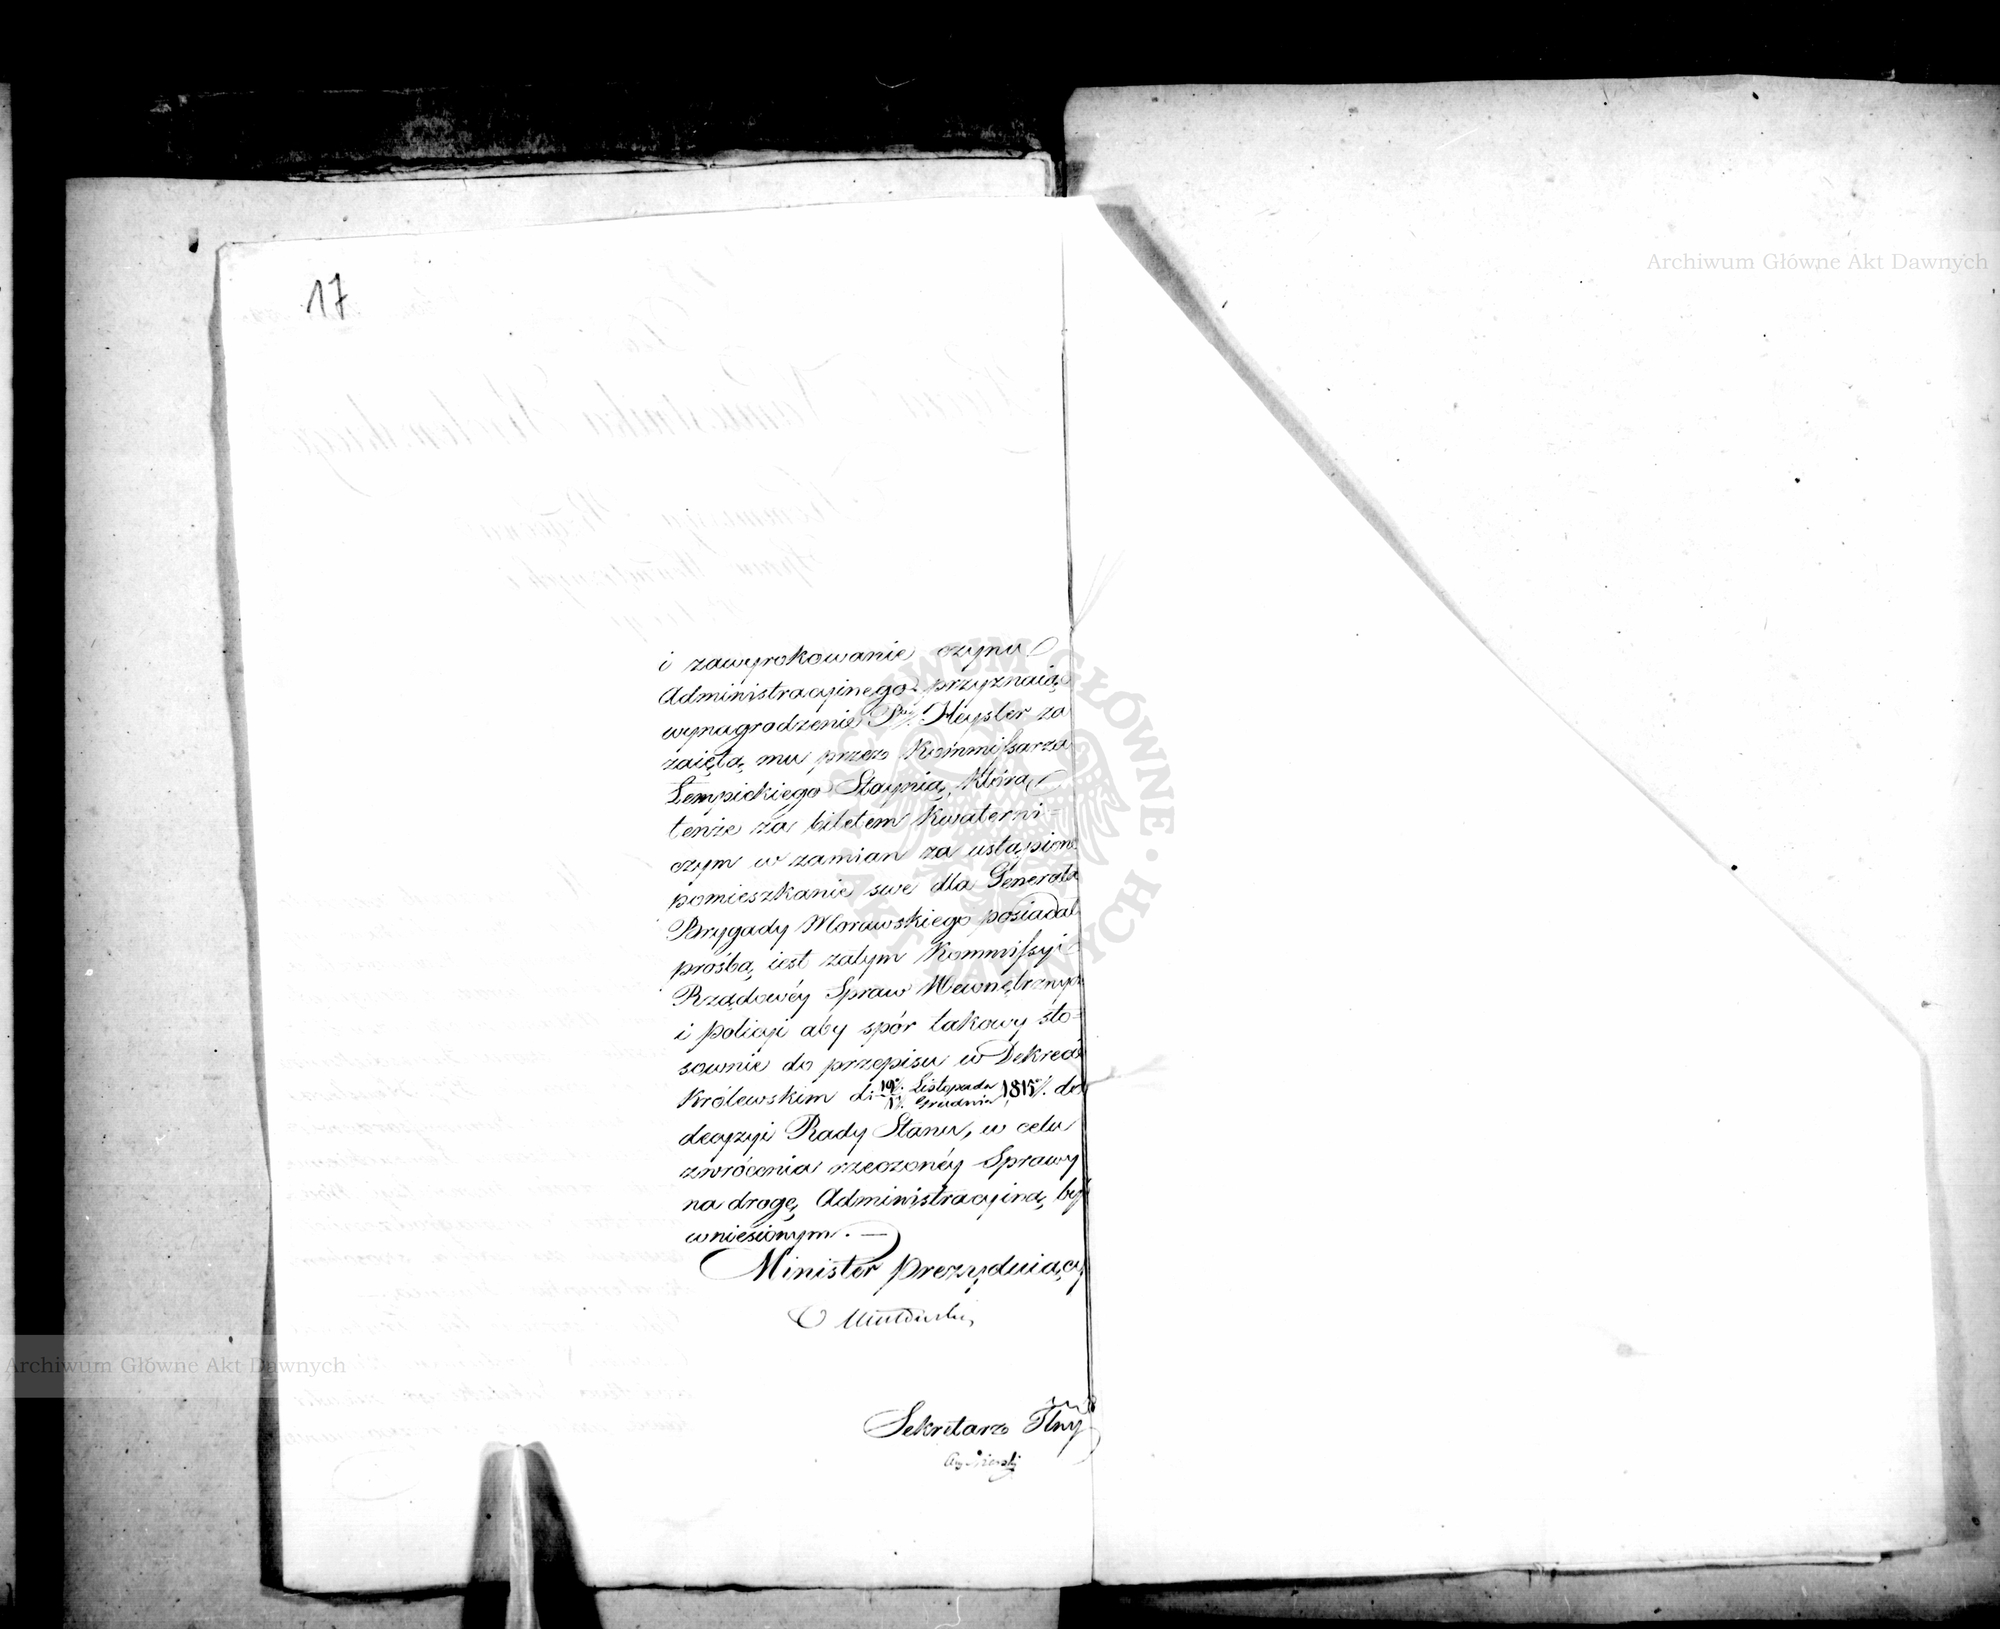 17
i zawyrokowanie czynu
Administracyinego przyznaiąc
wynagrodzenie Heysler za
zaiętą mu przez Kommissarza
Łempickiego Staynią, którą
tenże za biletem kwaterni-
czym w zamian za ustąpione
pomieszkanie swe dla Generała
Brygady Morawskiego posiadał
prośbą iest zatym Kommissyi
Rządowéy Spraw Wewnętrznych
i policyi aby spór takowy sto-
sownie do przepisu w Dekrecie
Królewskim d: 19/1 Listopada/Grudnia 181 do
decyzyi Rady Stanu, w celu
zwrócenia rzeczonéy Sprawy
na drogę Administracyiną, był
wniesionym. —
Minister prezyduiący
Sekretarz Jlny
Archiwum Główne Akt Dawnych
Archiwum Główne Akt Dawnych
ARCHIWUM GŁÓWNE AKT DAWNYCH